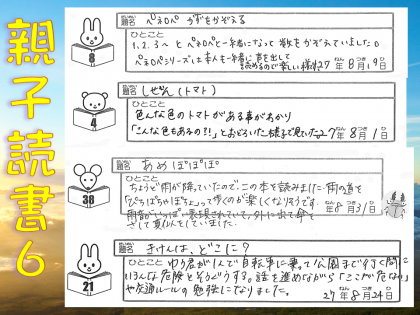 親子読書6
題名 ペネロペ かずをかぞえる
ひとこと
1、2、3〜とペネロペと一緒になって数をかぞえていました。
ペネロペシリーズは本人も一緒に声を出して
読めるので楽しい様です 27年8月19日
8
題名 しぜん(トマト)
ひとこと
色んな色のトマトがある事がわかり
「こんな色もあるの?!」とおどろいた様子で見ていた 27年8月1日
4
題名 あめぽぽぽ
ひとこと
ちょうど雨が降っていたので、この本を読みました。雨の道を
「ぴちゃぱちゃ って歩くのが楽しくなりそうです。
雨音がいっぱい表現されていて、外に出て傘を
さして真似をしていました。 年8月31日
38
題名 きけんは、どこに?
ひとこと ゆう君が1人で自転車に乗って公園まで行く間に
いろんな危険とそうぐうする。話を進めながら「ここが危ない」
や交通ルールの勉強になりました。 27年8月24日
21